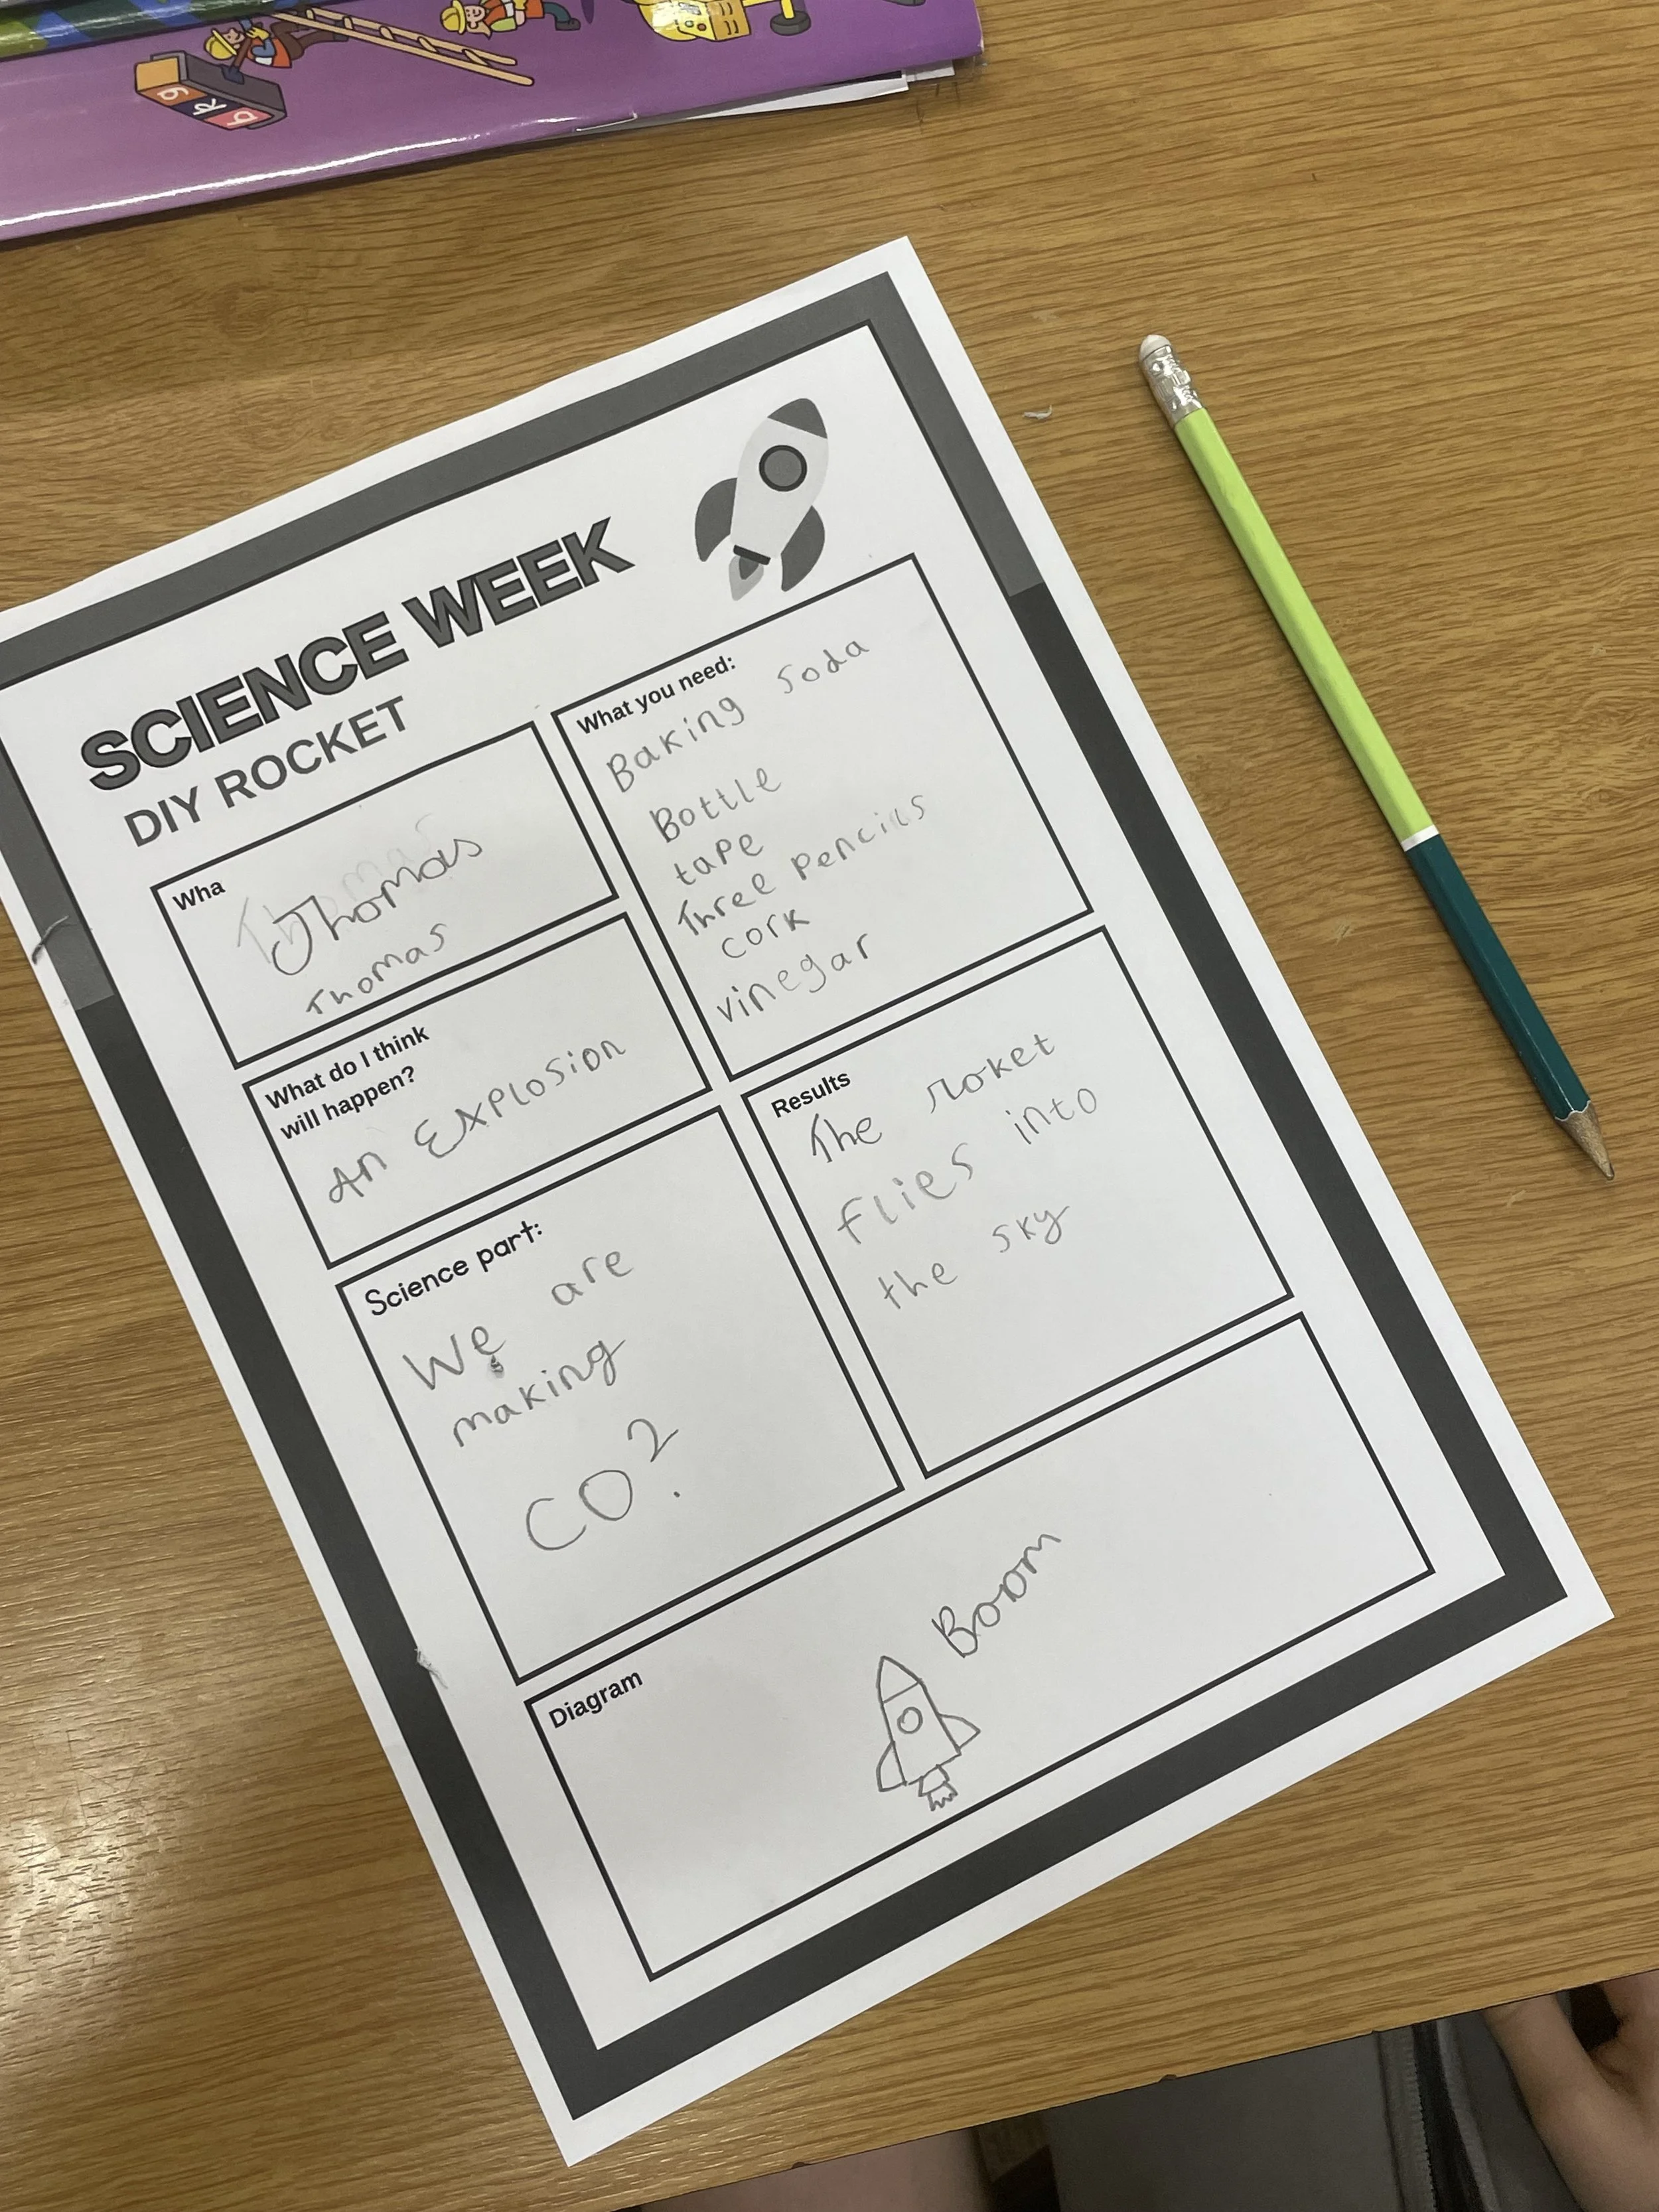 g k b
SCIENCE WEEK
DIY ROCKET
Wha
Thomas
Thomas
Thomas
What you need:
Baking soda
Bottle
tape
Three pencils
cork
vinegar
What do I think
will happen?
An Explosion
Science part:
We are
making
CO2.
Results
The roket
flies into
the sky
Diagram
Boom